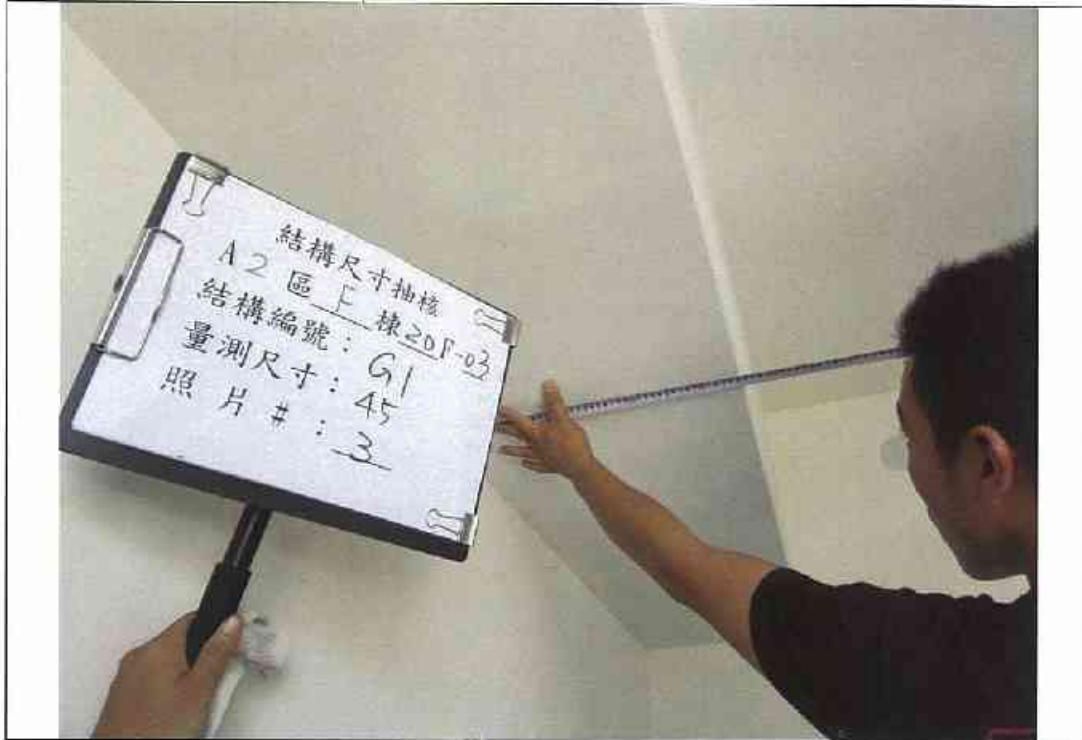 結構尺寸抽核
A2區 F 棟20F-03
結構編號：G1
量測尺寸：45
照片#：3